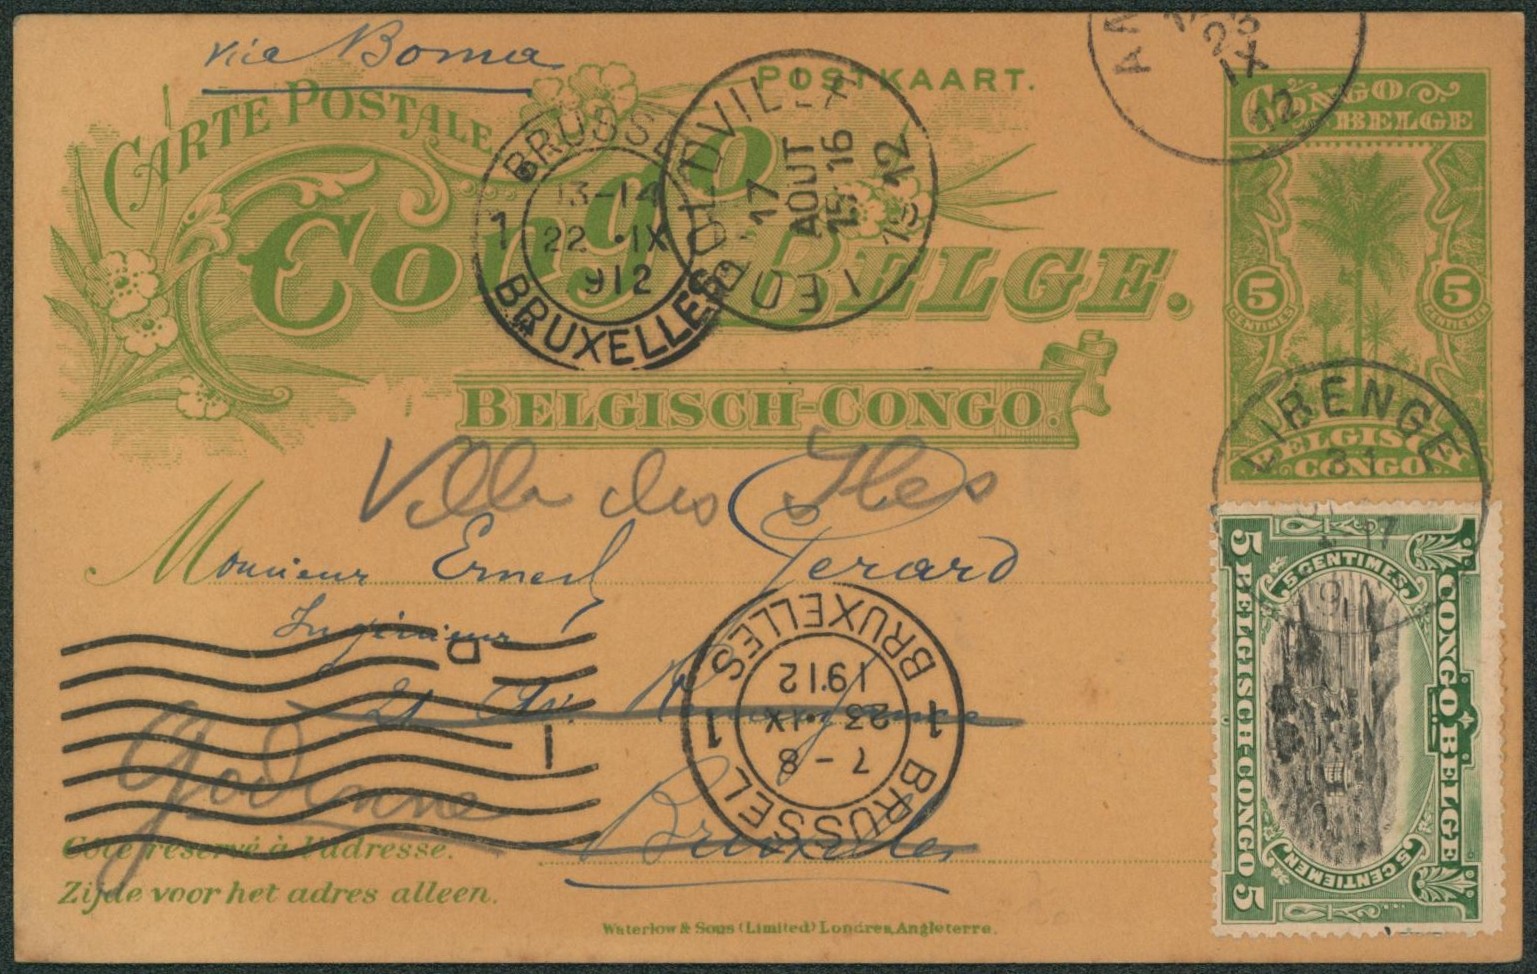 via Boma
CARTE POSTALE
POSTKAART.
CONGO BELGE.
BELGISCH-CONGO.
BRUSSEL
1
13-14
22 •IX
912
BRUXELLES
LEOPOLDVILLE
17
AOUT
15-16
1912
25
IX
12
CONGO
BELGE
5 5
CENTIMES
BELGISCH
CONGO
LIBENGE
Villa des Iles
Monsieur Ernest Gerard
Ingénieur
21 Av.
Bruxelles
Godinne
BRUXELLES
1912
23 •IX
7-8
1 1
BRUSSEL
Côté reservé à l'adresse.
Zijde voor het adres alleen.
Waterlow & Sons (Limited) Londres, Angleterre.
CONGO BELGE
5 CENTIMES
5 CENTIEMEN
5 BELGISCH-CONGO 5